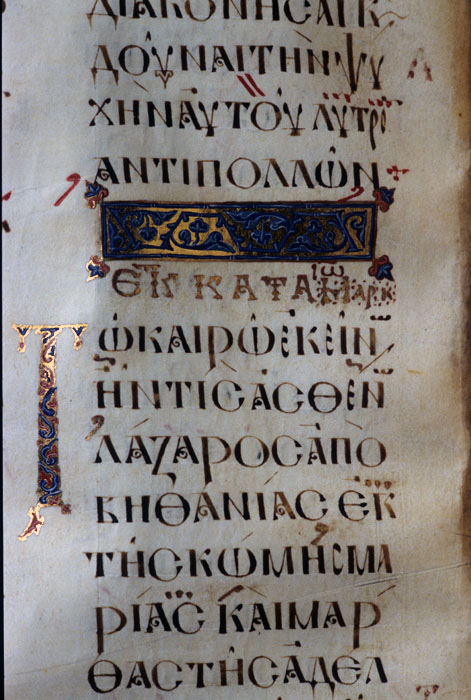 ΔΙΑΚΟΝΗϹΑΙΚ
ΔΟΥΝΑΙΤΗΝΨΥ
ΧΗΝΑΥΤΟΥΛΥΤΡΟ
ΑΝΤΙΠΟΛΛΩΝ
ΕΚ ΚΑΤΑ
ΤΩΚΑΙΡΩΕΚΕΙΝ
ΗΝΤΙϹΑϹΘΕΝ
ΛΑΖΑΡΟϹΑΠΟ
ΒΗΘΑΝΙΑϹΕΚ
ΤΗϹΚΩΜΗϹΜΑ
ΡΙΑϹΚΑΙΜΑΡ
ΘΑϹΤΗϹΑΔΕΛ